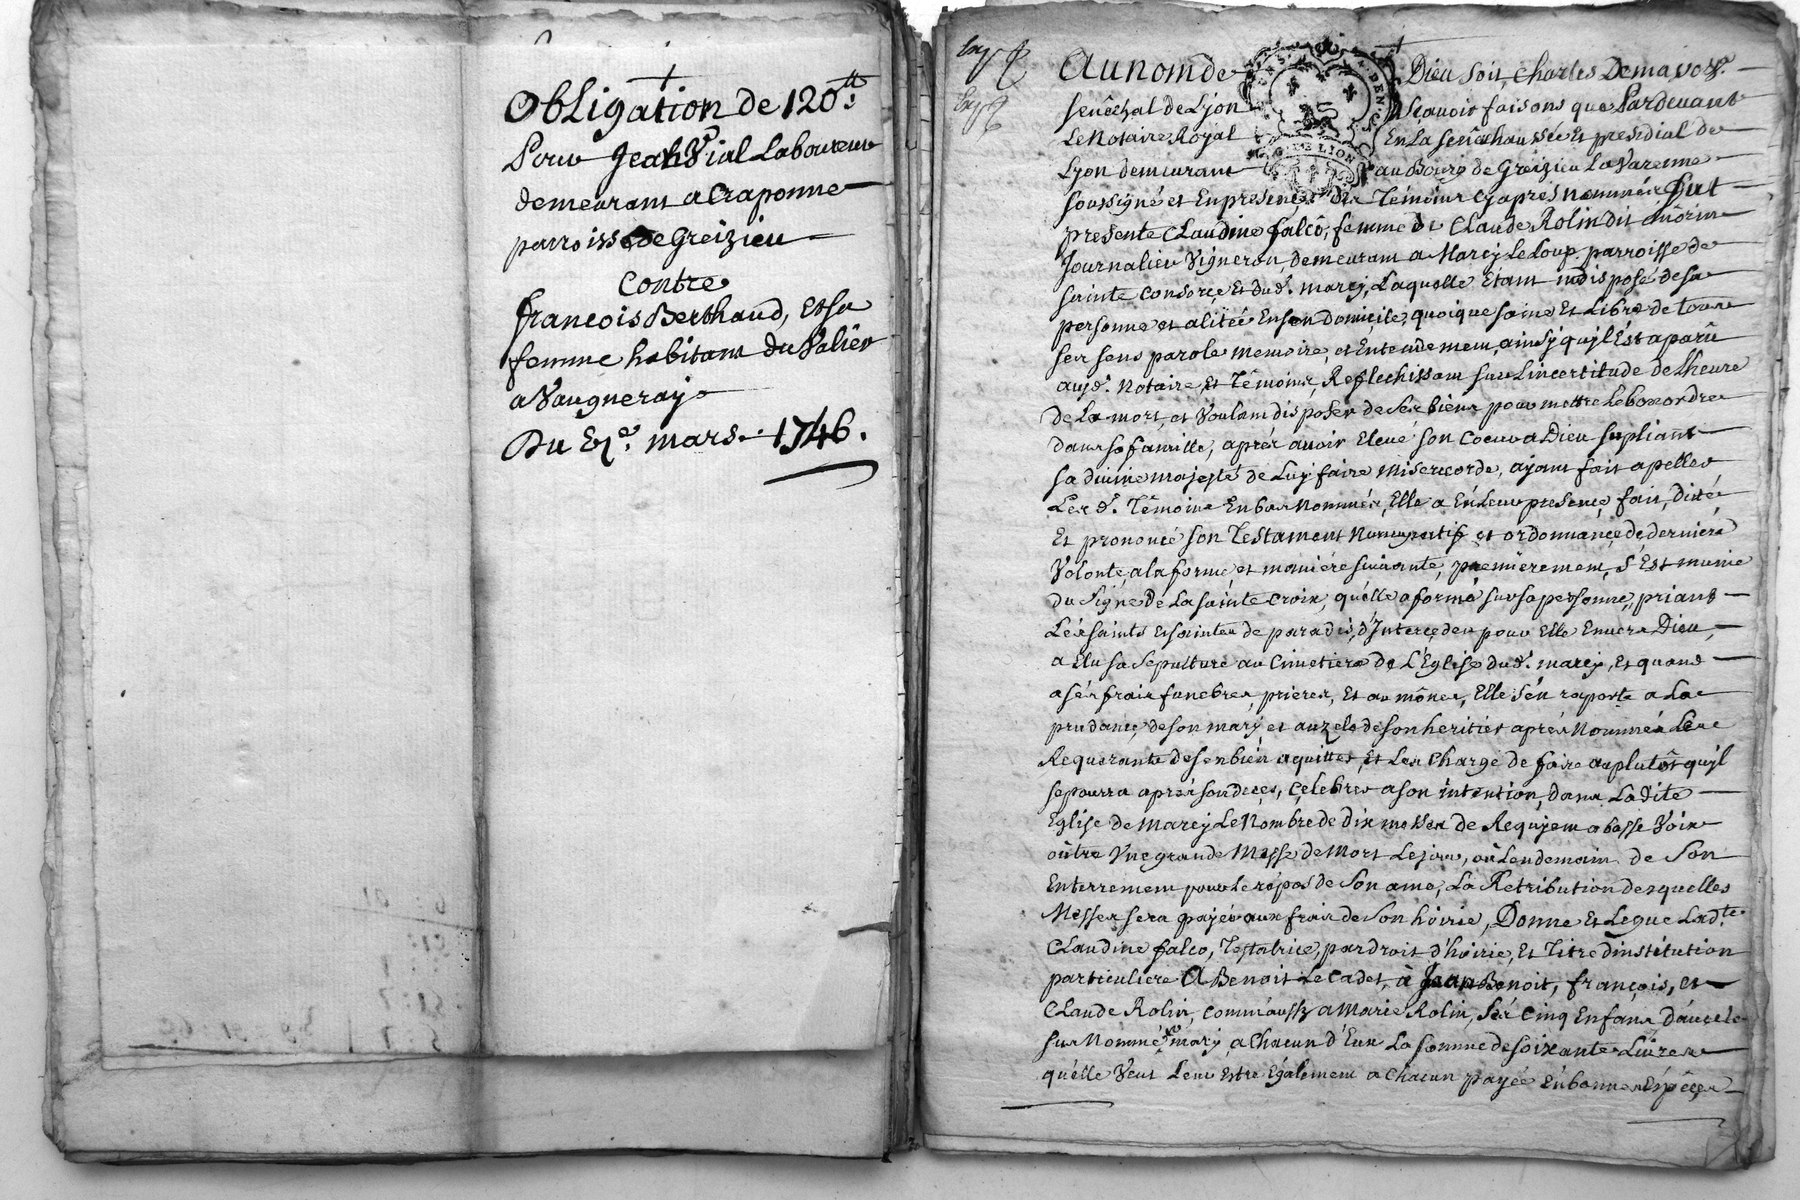 Obligation de 120ᵗᵗ.
Pour Jean Vial Laboureur
demeurant a Craponne
parroisse de Greizieu
contre
françois Berthaud, et sa
femme habitans du Palier
a Vaugneray
Du Er. mars 1746.
Au nom de Dieu soit, Charles
senêchal de Lyon scavoir faisons que Pardevant
Le Notaire Royal En La senêchaussée et presidial de
Lyon demeurant au Bourg de Greizieu La Varenne
soussigné et En presence des Témoins cy apres nommés fut
presente Claudine falco, femme de Claude Rolin dit
Journalier Vigneron, demeurant a Marcy Le Loup parroisse de
sainte Consorce et dud. marcy, Laquelle Etant indisposé de sa
personne et alitée En son domicile, quoique saine Et Libre de tous
ses sens parole memoire, et Entendement, ainsy qu'jl Est aparû
auxd. Notaire, et Témoins, Reflechissant sur Lincertitude de Lheure
de La mort, et Voulant disposer de ses biens pour mettre Le bon ordre
dans sa famille, aprés avoir Elevé son coeur a Dieu supliant
sa divine majesté de Luy faire misericorde, ayant fait apeller
Les d. Témoins En bas Nommés, Elle a En Leur presence, fait, dicté
Et prononcé son Testament Nuncupatif et ordonnance de derniere
Volonté, a la forme, et maniére suivante, premiérement, s'Est munie
du signe de La sainte Croix, quelle a formé sur sa personne, priant
Les saints Et saintes de paradis, d'Interceder pour Elle Envers Dieu,
a Elu sa sepulture au Cimetiere de L'Eglise dud. marcy, Et quand
a sés frais funebres, prieres, Et aumônes, Elle s'En raporte a La
prudance de son mary, et au zele de son heritier aprés Nommé
Requerante de s'en bien aquitter, Et Les Charge de faire au plutôt qu'jl
se pourra aprés son deces, Celebrer a son intention, dans Ladite
Eglise de Marcy Le Nombre de dix messes de Requjem a basse Voix
oûtre Une grande Messe de Mort Le jour, où Lendemain de son
Enterrement pour Le répos de son ame, La Retribution desquelles
Messes sera payée aux frais de son hoirie, Donne Et Legue Ladᵗᵉ.
Claudine falco, Testatrice, par droit d'hoirie, Et Titre dinstitution
particuliere A Benoit Le Cadet, à Jean Benoit, françois, et
Claude Rolin, comm'aussy a Marie Rolin, sés Cinq Enfans
sus Nommé mary, a Chacun d'Eux La somme de soixante Livres
quélle Veut Leur Estre Egalement a Chacun payée En bonnes Espêces